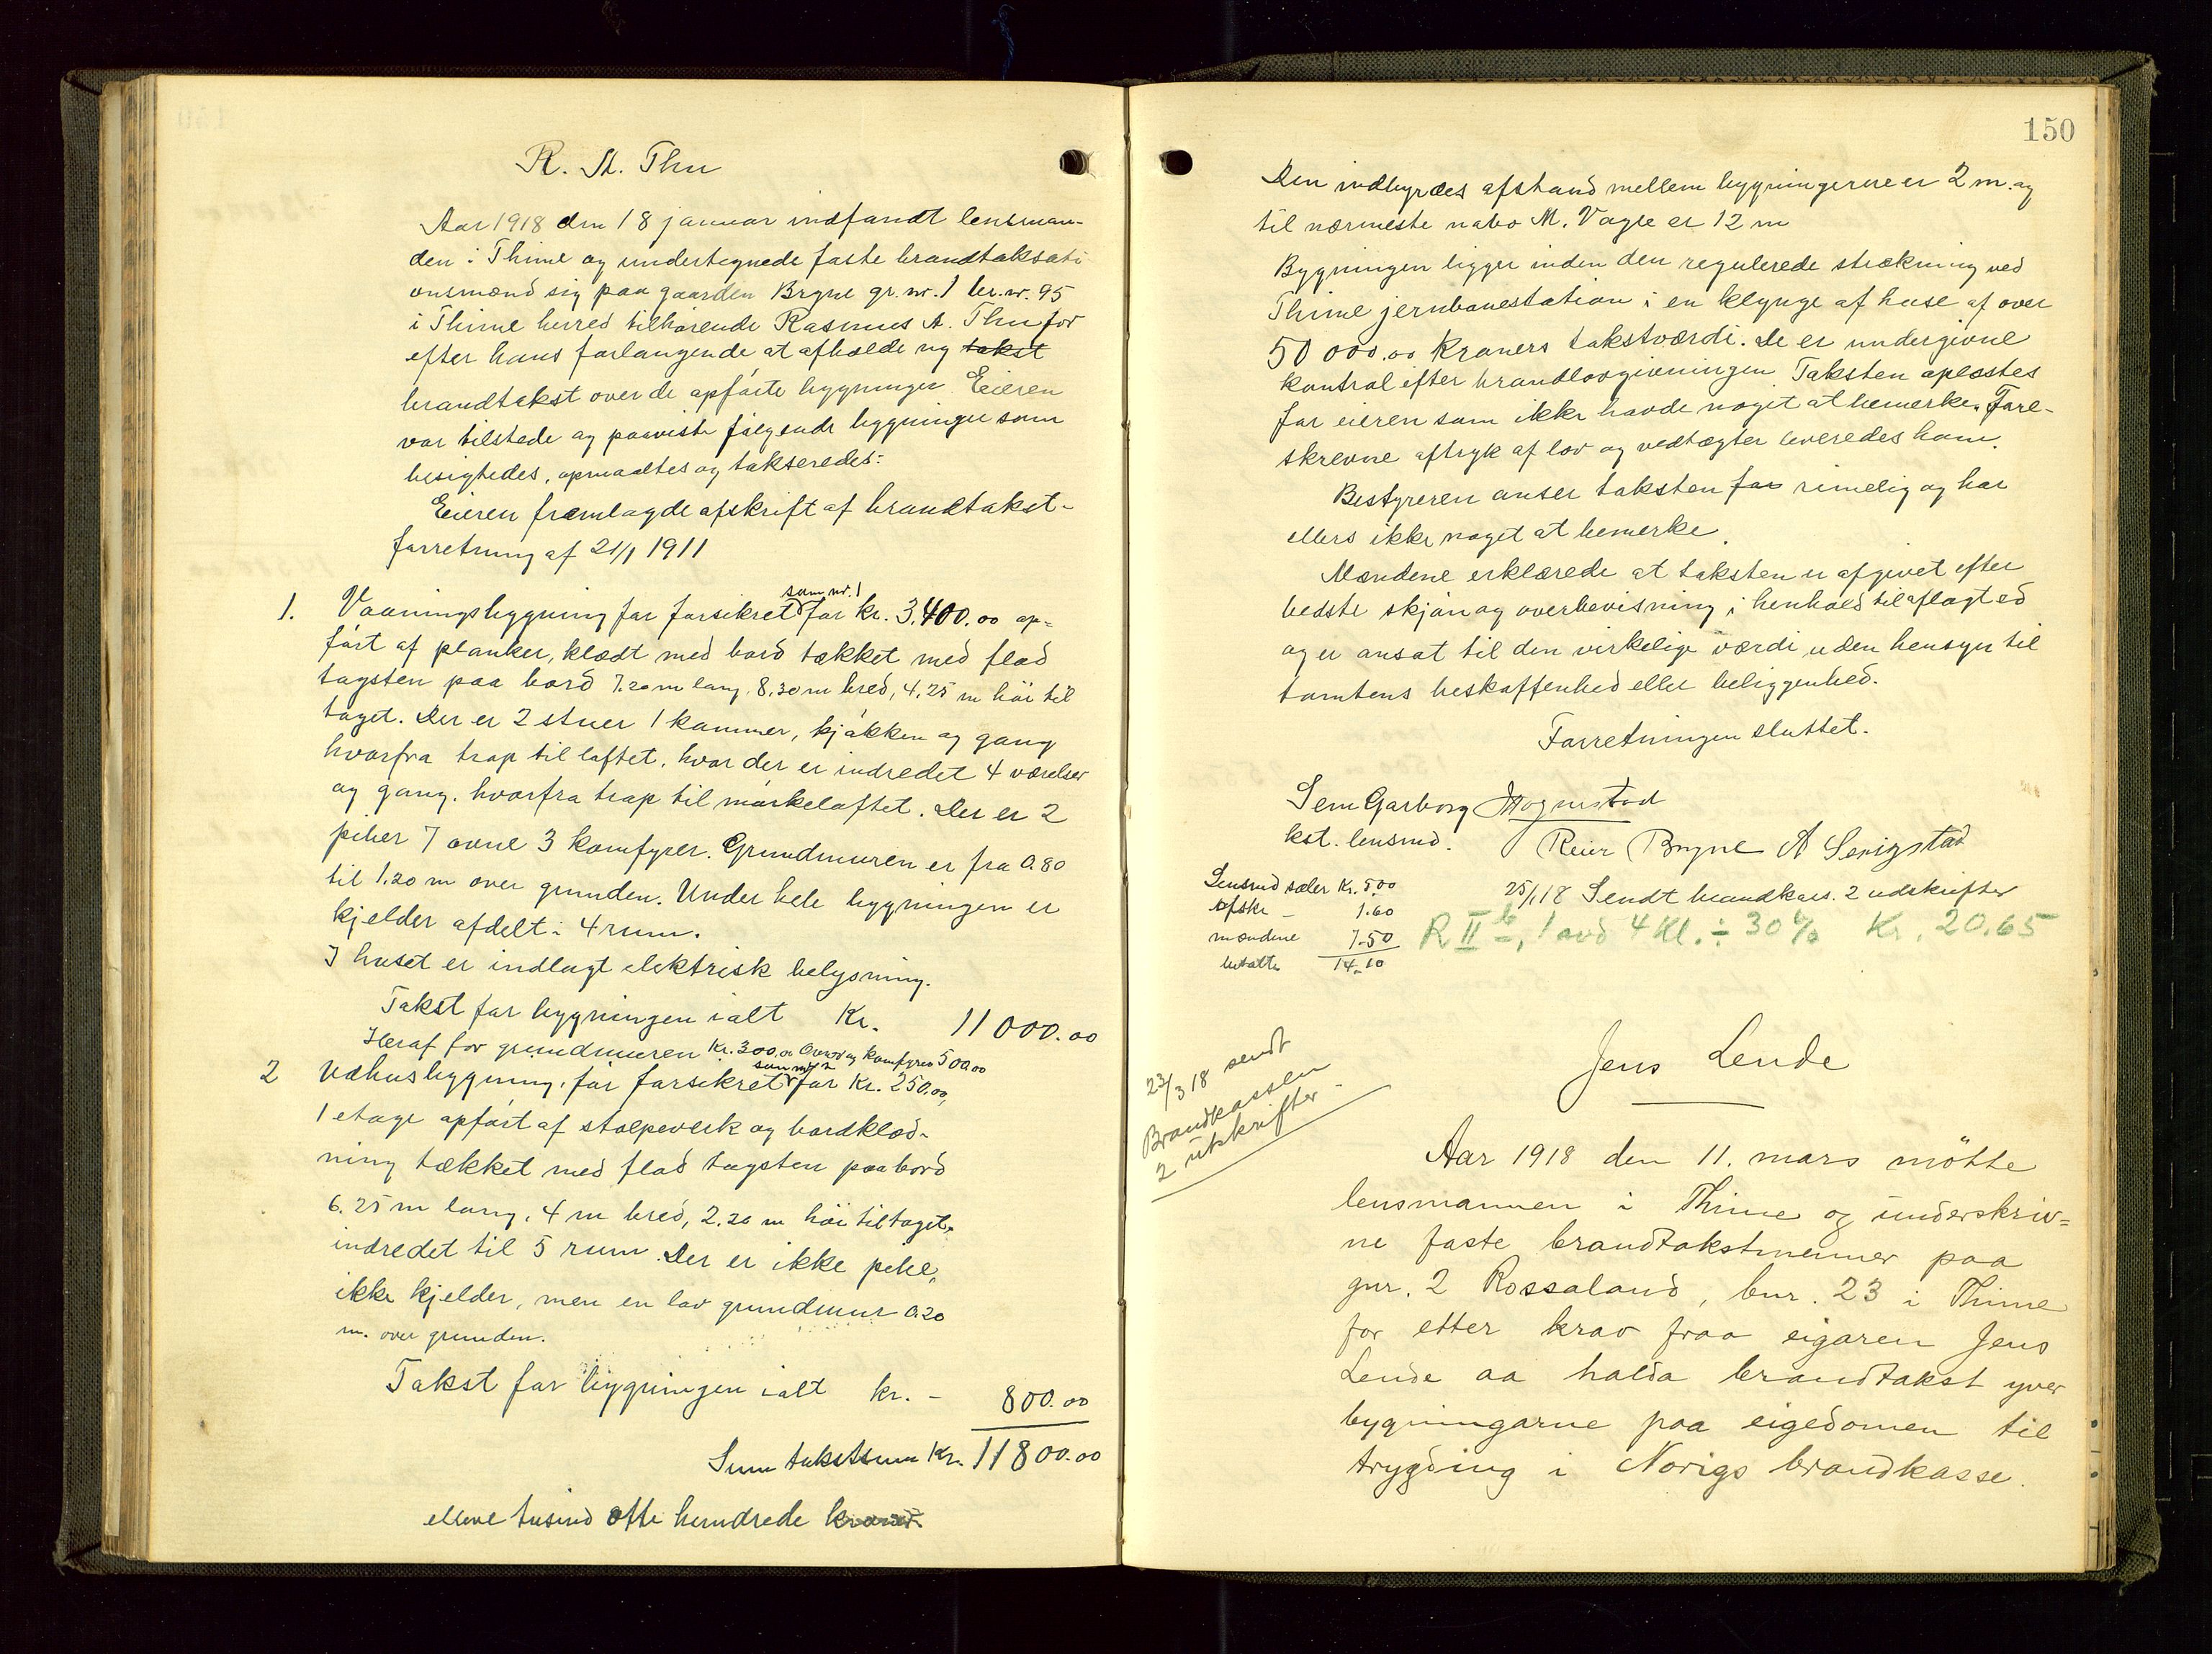 R. A. Thu
Aar 1918 den 18 januar indfandt lensman-
den i Thime og undertegnede faste brandtaksati
onsmænd sig paa gaarden Bryne gr.nr. 1 br.nr. 95
i Thime herred tilhørende Rasmus A. Thu for
efter hans forlangende at afholde ny takst
brandtakst over de opførte bygninger Eieren
var tilstede og paaviste følgende bygninger som
besigtedes, opmaaltes og takseredes:
Eieren fremlagde afskrift af brandtakst-
forretning af 21/1 1911
som nr. 1
1. Vaaningsbygning før forsikret for kr. 3.400.00 op-
ført af planker, klædt med bord tækket med flad
tagsten paa bord 7.20 m lang, 8.30 m bred, 4.25 m høi til
taget. Der er 2 stuer 1 kammer, kjøkken og gang
hvorfra trap til loftet, hvor der er indredet 4 værelser
og gang, hvorfra trap til mørkeloftet. Der er 2
piber 7 ovne 3 komfyrer. Grundmuren er fra 0.80
til 1.20 m over grunden. Under hele bygningen er
kjelder afdelt i 4 rum.
I huset er indlagt elektrisk belysning.
Takst for bygningen ialt Kr. 11000.00
Heraf for grundmuren Kr. 300.00 Ovner og komfyrer 500.00
som nr. 2
2 Udhusbygning, før forsikret for Kr. 250.00,
1 etage opført af stolpeverk og bordklæd-
ning tækket med flad tagsten paa bord
6.25 m lang, 4 m bred, 2.20 m høi til taget
indredet til 5 rum. Der er ikke pibe,
ikke kjelder, men en lav grundmur 0.20
m. over grunden.
Takst for bygningen ialt kr. - 800.00
Sum takstsum Kr. 11800.00
elleve tusind otte hundrede kroner
150
Den indbyrdes afstand mellem bygningerne er 2 m. og
til nærmeste nabo M. Vagle er 12 m
Bygningen ligger inden den regulerede strækning ved
Thime jernbanestation i en klynge af huse af over
50 000.00 Kroners takstværdi. De er undergivne
kontrol efter brandlovgivningen Taksten oplæstes
for eieren som ikke havde noget at bemerke. Fore-
skrevne aftryk af lov og vedtægter leveredes ham.
Bestyreren anser taksten for rimelig og har
ellers ikke noget at bemerke.
Mændene erklærede at taksten er afgivet efter
bedste skjøn og overbevisning i henhold til aflagt ed
og er ansat til den virkelige værdi uden hensyn til
tomtens beskaffenhed eller beliggenhed.
Forretningen sluttet.
Sem Garborg Hognestad
kst. lensmd. Reier Bryne A Serigstad
Lensmd sæler Kr. 5.00
Afskr - 1.60
mændene 7.50
betalt 14.10
25/1 18 Sendt brandkas. 2 udskrifter
R II b, 1 avd 4 Kl. ÷ 30% Kr. 20.65
Jens Lende
23/3 18 sendt
Brandkassen
2 utskrifter
Aar 1918 den 11. mars mötte
lensmannen i Thime og underskriv=
ne faste brandtakstmenner paa
gnr. 2 Rossaland, bnr. 23 i Thime
for etter krav fraa eigaren Jens
Lende aa halda brandtakst yver
bygningarne paa eigedomen til
trygding i Norigs brandkasse.